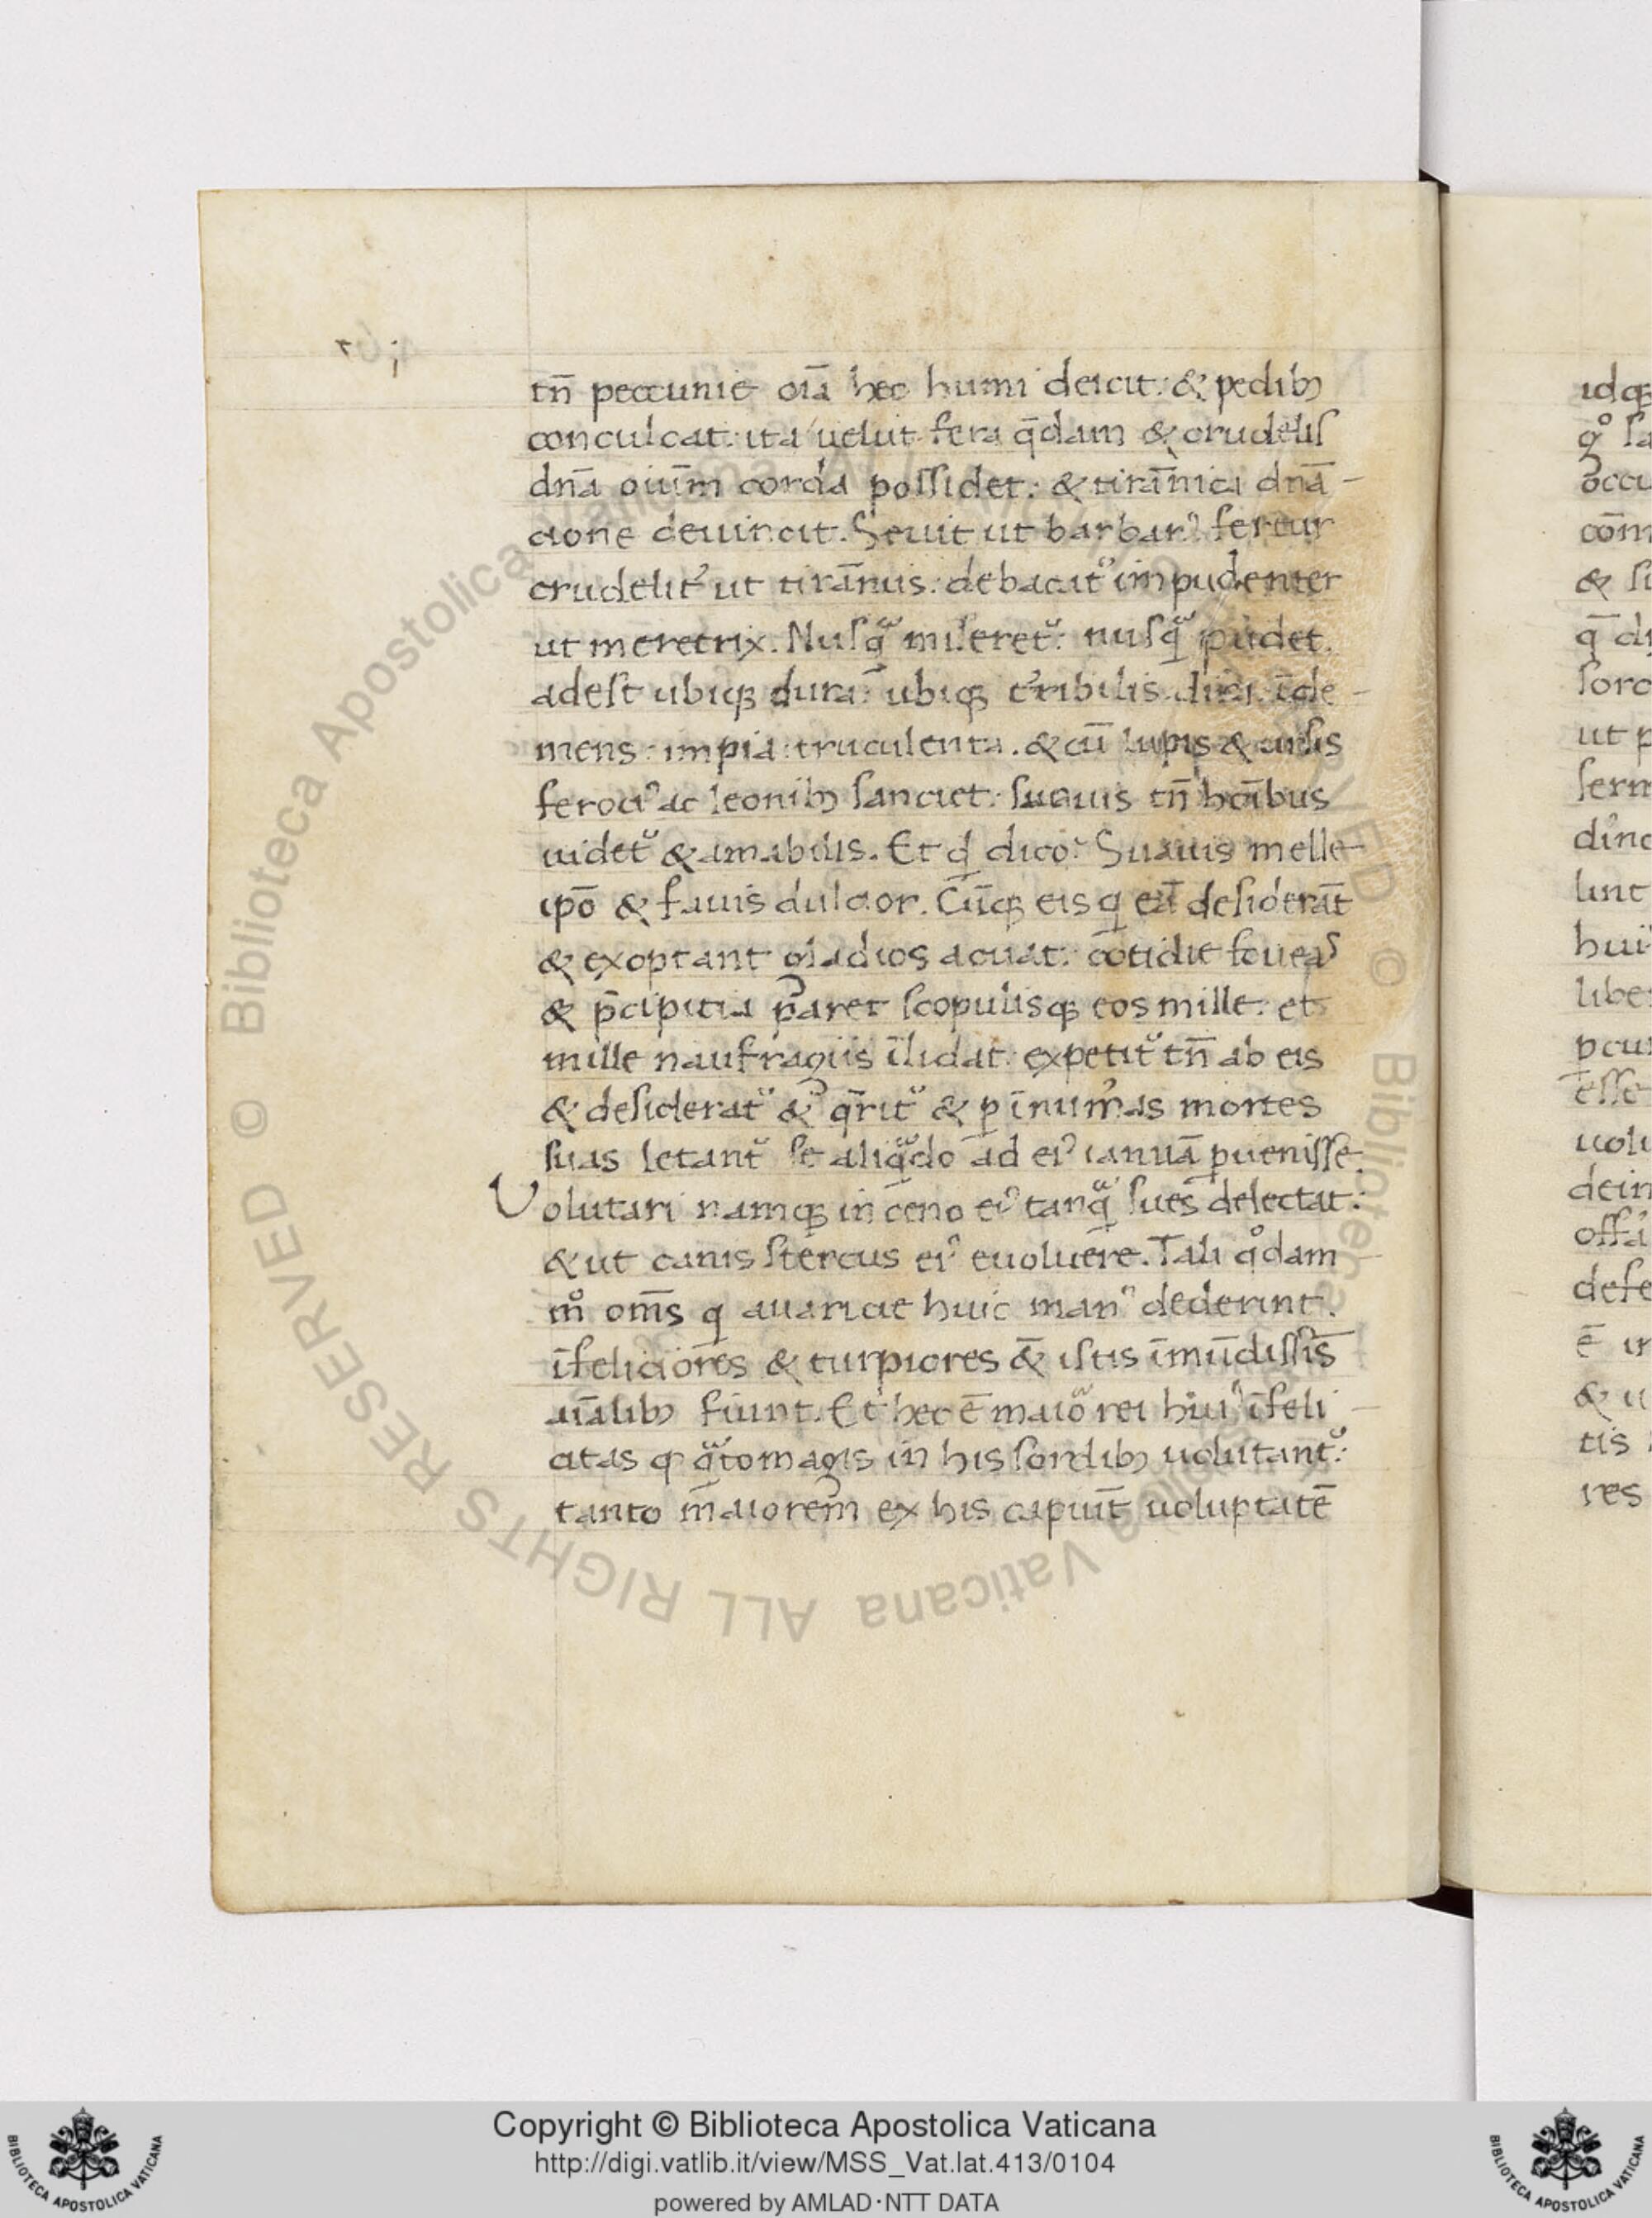 tn̄ peccunie oīa hec humi deicit: & pedibꝫ
conculcat: ita uelut fera q̄dam & crudelis
dn̄a oiūm corda possidet: & tirān̄ica dn̄a-
cione deuincit. Seuit ut barbarꝰ fertur
crudelit᾽ ut tirān̄us: debacat᷑ impudenter
ut meretrix. Nusqᷓ miseret᷑: nusqᷓ pudet.
adest ubiqꝫ dura: ubiqꝫ t᾽ribilis. dira. īcle-
mens: impia: truculenta. & cū lupis & ursis
feroci᾽ ac leonibꝫ sanciet: suauis tn̄ hoībus
uidet᷑ & amabilis. Et qͩ dico? Suauis melle
ip̄o & fauis dulcior. Cūqꝫ eis q eā desiderāt
& exoptant gladios acuat: cōtidie foueas
& p̄cipitia p̄aret scopulisqꝫ eos mille: et
mille naufragiis īlidat: expetit᷑ tn̄ ab eis
& desiderat᷑ & q̄rit᷑ & ꝑ īnum᾽as mortes
suas letant᷑ se aliqᷓdo ad eiꝰ ianuā ꝑuenisse.
Uolutari namqꝫ in ceno eiꝰ tanqᷓ sues delectat:
& ut canis stercus eiꝰ euoluere. Tali qͦdam
mͦ oms̄ q auaricie huic manꝰ dederint.
īfeliciores & turpiores & istis īmūdissis̄
aīalibꝫ fiunt. Et hec ē maior rei huiꝰ īfeli-
citas ꝙ qᷓto magis in his sordibꝫ uolutant᷑:
tanto maiorem ex his capiūt uoluptatē
idqꝫ
qͦ sa
occu
cōm
& si
q̄ di
sord
ut p
serm
dinc
lint
hui
libe
ꝑcu
esse
uolu
dein
offi
defe
ē in
& u
tis
res
© Biblioteca Apostolica Vaticana ALL RIGHTS RESERVED
© Biblioteca Apostolica Vaticana ALL RIGHTS RESERVED
Copyright © Biblioteca Apostolica Vaticana
http://digi.vatlib.it/view/MSS_Vat.lat.413/0104
powered by AMLAD·NTT DATA
BIBLIOTECA APOSTOLICA VATICANA
BIBLIOTECA APOSTOLICA VATICANA